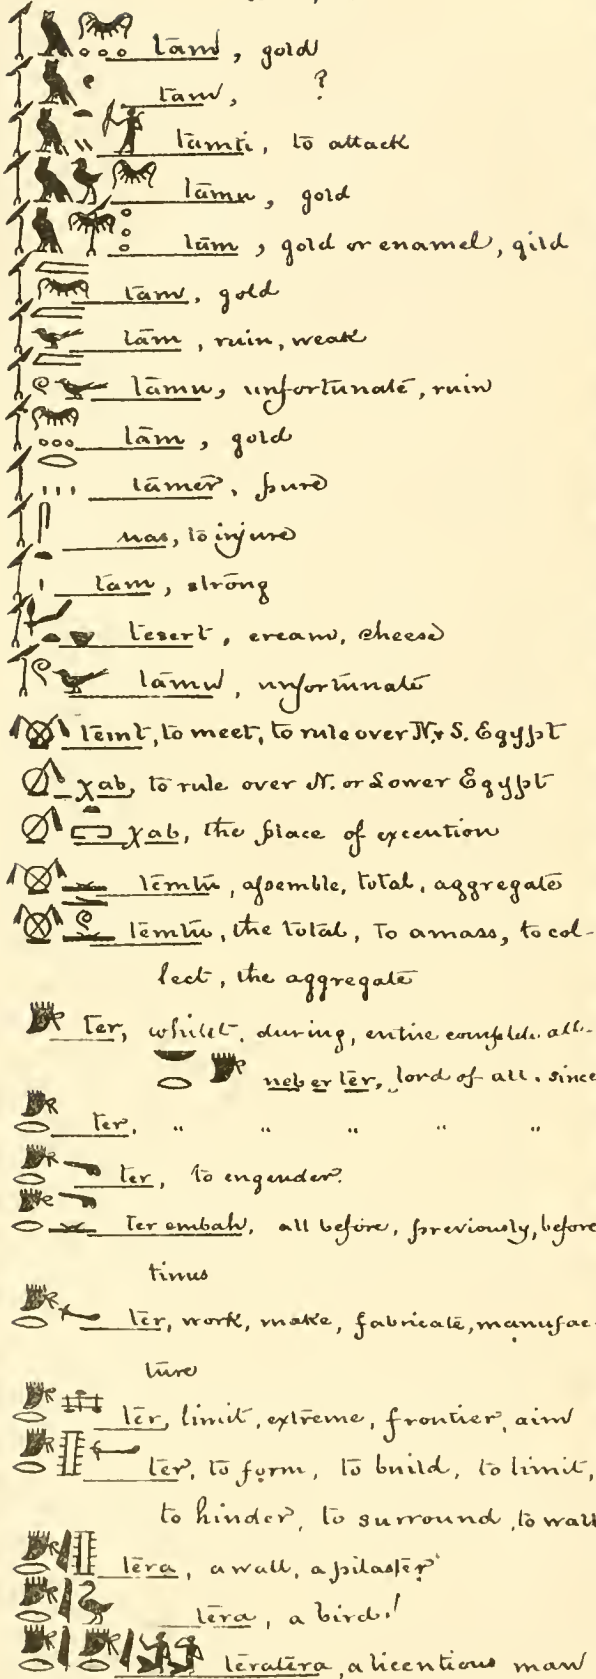 tām, gold
tām, ?
tāmti, to attack
tāmu, gold
tām, gold or enamel, gild
tām, gold
tām, ruin, weak
tāmu, unfortunate, ruin
tām, gold
tāmer, pure
uas, to injure
tam, strong
tesert, cream, cheese
tāmu, unfortunate
temt, to meet, to rule over N. & S. Egypt
χab, to rule over N. or Lower Egypt
χab, the place of execution
temtu, assemble, total, aggregate
temtu, the total, to amass, to col-
lect, the aggregate
ter, whilst, during, entire complete all
neb er ter, lord of all. since
ter, " " " " "
ter, to engender.
ter embah, all before, previously, before
times
ter, work, make, fabricate, manufac-
ture
ter, limit, extreme, frontier, aim
ter, to form, to build, to limit,
to hinder, to surround, to wall
tera, a wall, a pilaster
tera, a bird!
teratera, a licentious man